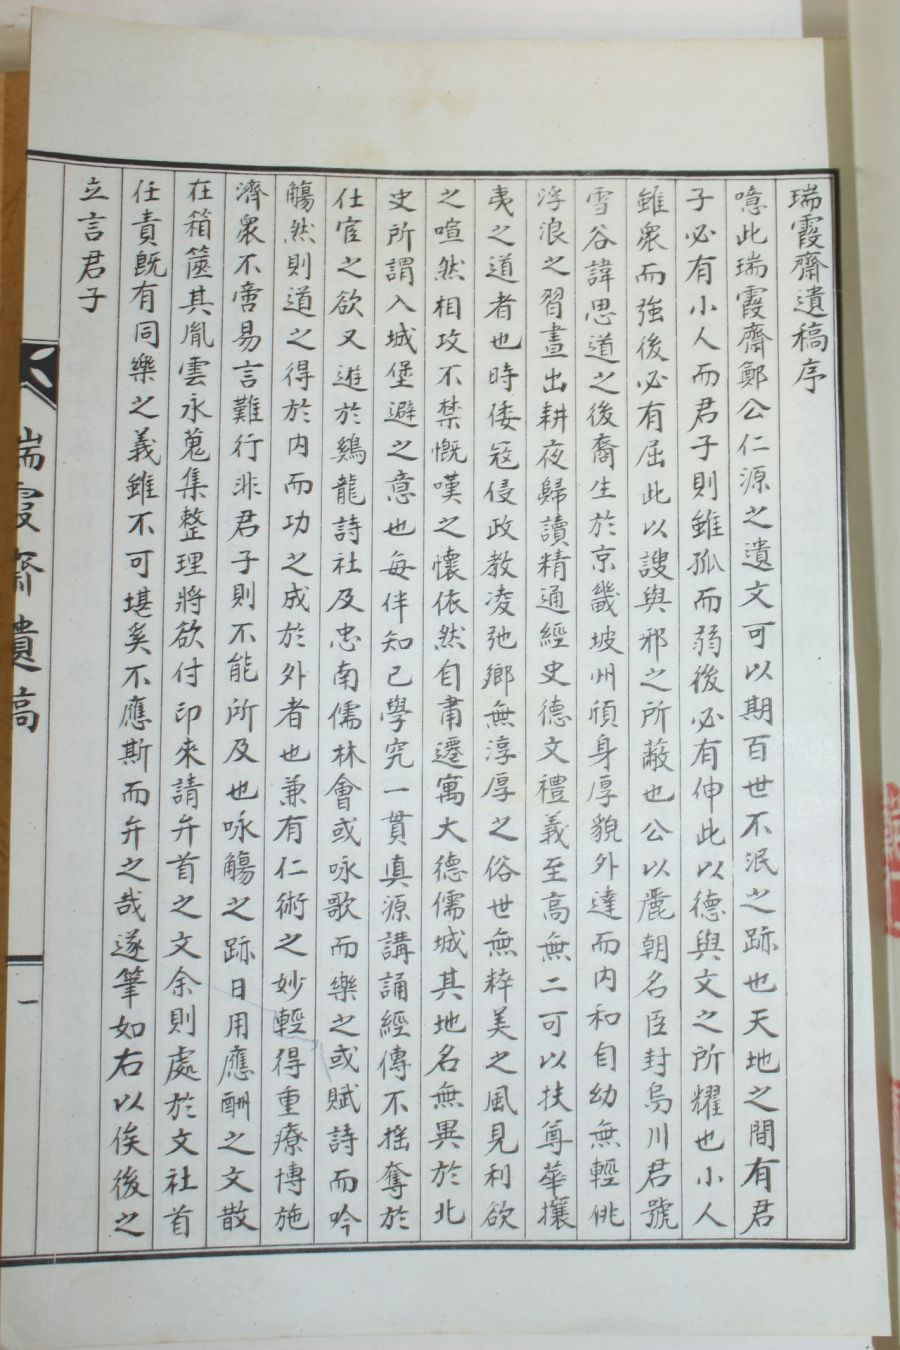 瑞霞齋遺稿序
噫此瑞霞齋鄭公仁源之遺文可以期百世不泯之跡也天地之間有君
子必有小人而君子則雖孤而弱後必有伸此以德與文之所耀也小人
雖衆而強後必有屈此以謏與邪之所蔽也公以麗朝名臣封烏川君號
雪谷諱思道之後裔生於京畿坡州頎身厚貌外達而内和自幼無輕佻
浮浪之習晝出耕夜歸讀精通經史德文禮義至高無二可以扶尊華攘
夷之道者也時倭寇侵政教凌弛鄉無淳厚之俗世無粹美之風見利欲
之喧然相攻不禁慨嘆之懷依然自肅遷寓大德儒城其地名無異於北
史所謂入城堡避之意也每伴知己學究一貫真源講誦經傳不搖奪於
仕宦之欲又遊於鷄龍詩社及忠南儒林會或咏歌而樂之或賦詩而吟
觴然則道之得於内而功之成於外者也兼有仁術之妙輕得重療博施
濟衆不啻易言難行非君子則不能所及也咏觴之跡日用應酬之文散
在箱篋其胤雲永蒐集整理將欲付印來請弁首之文余則處於文社首
任責既有同樂之義雖不可堪奚不應斯而弁之哉遂筆如右以俟後之
立言君子
瑞霞齋遺稿
一